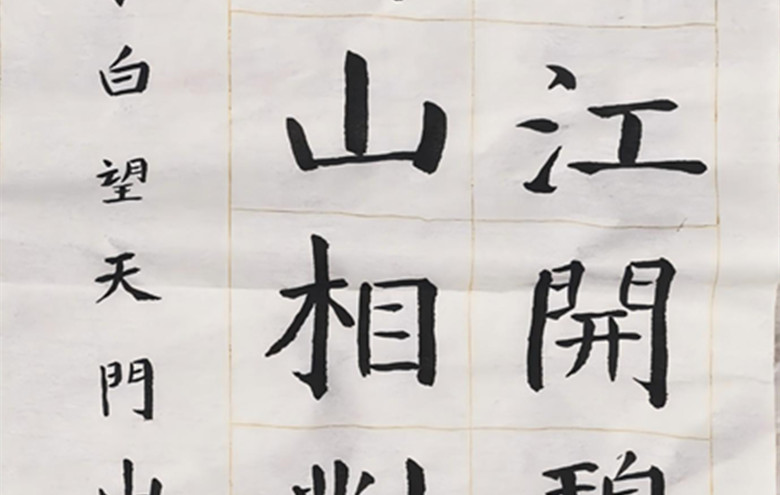 江開碧
山相對
白望天門山